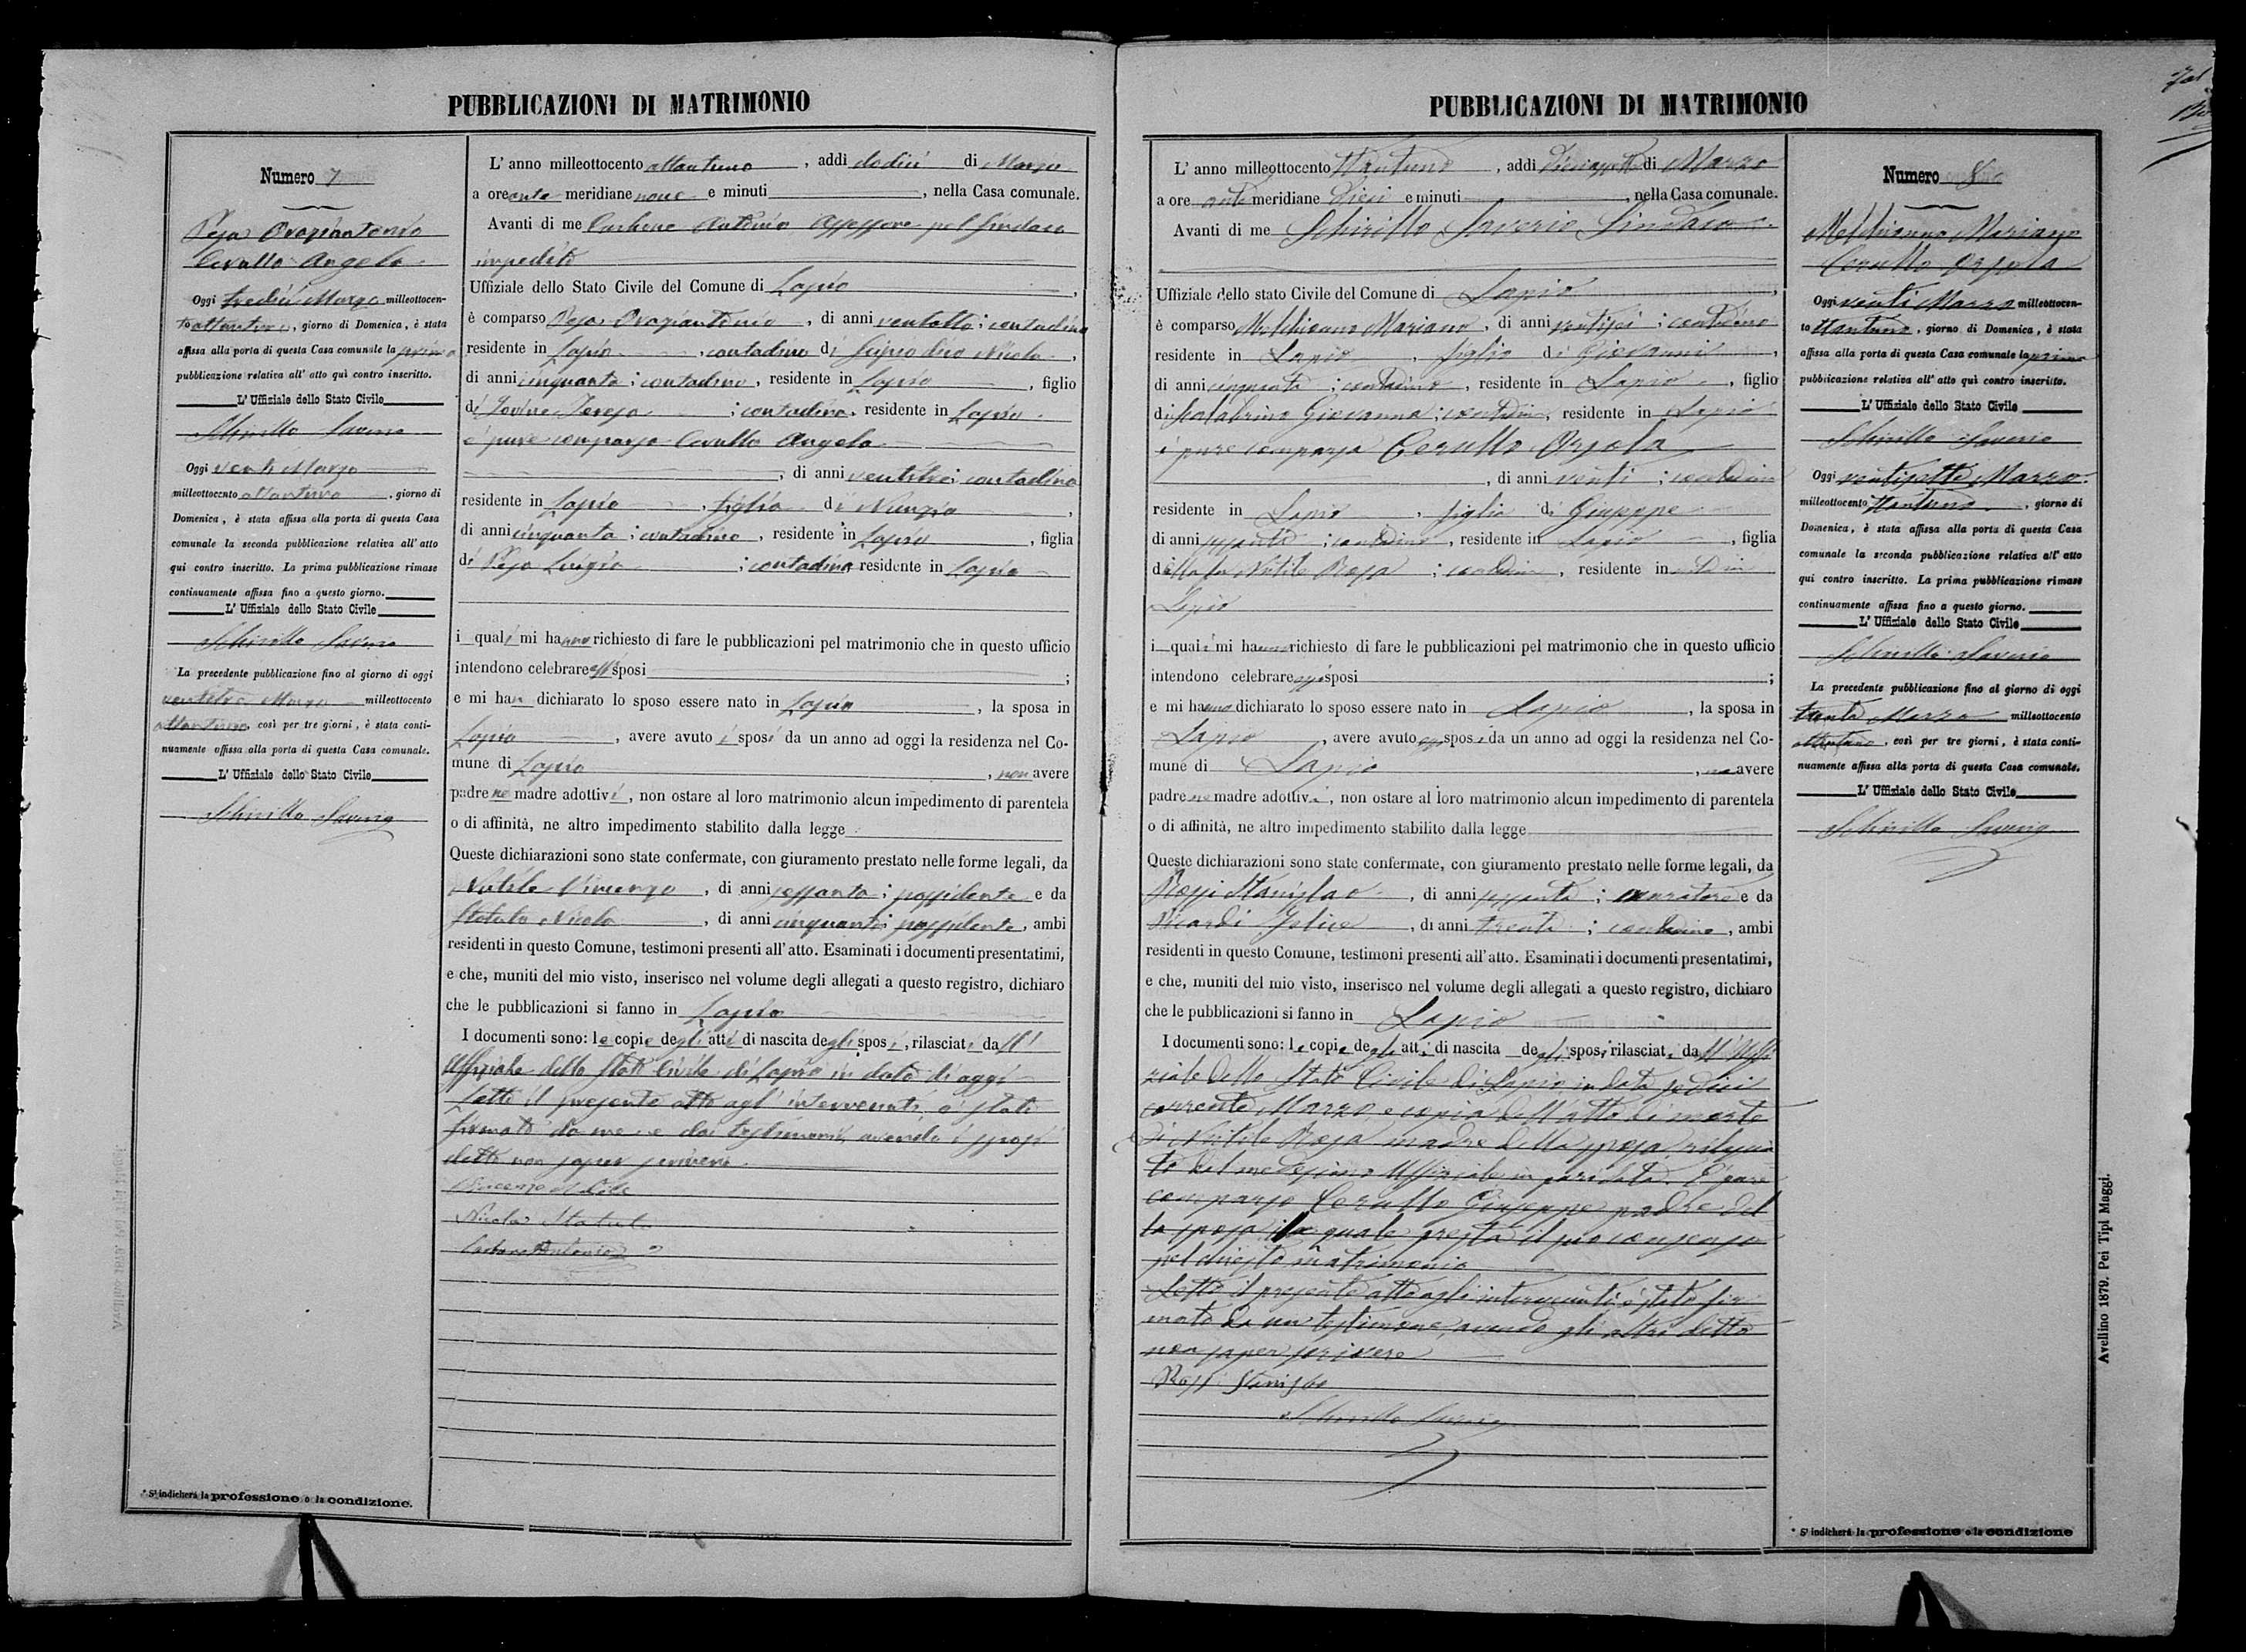 PUBBLICAZIONI DI MATRIMONIO
Numero 7
Oggi tredici Marzo milleottocen-
to ottantuno, giorno di Domenica, è stata
affissa alla porta di questa Casa comunale la prima
pubblicazione relativa all' atto quì contro inscritto.
L' Uffiziale dello Stato Civile
Schirillo Saverio
Oggi venti Marzo
milleottocento ottantuno, giorno di
Domenica, è stata affissa alla porta di questa Casa
comunale la seconda pubblicazione relativa all' atto
qui contro inscritto. La prima pubblicazione rimase
continuamente affissa fino a questo giorno.
L' Uffiziale dello Stato Civile
Schirillo Saverio
La precedente pubblicazione fino al giorno di oggi
ventitre Marzo milleottocento
ottantuno così per tre giorni, è stata conti-
nuamente affissa alla porta di questa Casa comunale.
L' Uffiziale dello Stato Civile
Schirillo Saverio
* Si indicherà la professione o la condizione.
L' anno milleottocento ottantuno, addì dodici di Marzo
a ore ante meridiane nove e minuti , nella Casa comunale.
Avanti di me Carbone Antonio Assessore pel Sindaco
impedito
Uffiziale dello Stato Civile del Comune di Lapio,
è comparso , di anni ventotto; contadino
residente in Lapio, contadino di Nicola,
di anni cinquanta; contadino, residente in Lapio, figlio
di Teresa; contadina, residente in Lapio
è pure comparsa Cerullo Angela
, di anni ventitre; contadina
residente in Lapio, figlia di Nunzio,
di anni cinquanta; contadino, residente in Lapio, figlia
di Luigia; contadina residente in Lapio
i quali mi hanno richiesto di fare le pubblicazioni pel matrimonio che in questo ufficio
intendono celebrare essi sposi;
e mi han dichiarato lo sposo essere nato in Lapio, la sposa in
Lapio, avere avuto i sposi da un anno ad oggi la residenza nel Co-
mune di Lapio, non avere
padre ne madre adottivi, non ostare al loro matrimonio alcun impedimento di parentela
o di affinità, ne altro impedimento stabilito dalla legge
Queste dichiarazioni sono state confermate, con giuramento prestato nelle forme legali, da
Nutile Vincenzo, di anni sessanta; possidente e da
Statuto Nicola, di anni cinquanta; possidente, ambi
residenti in questo Comune, testimoni presenti all' atto. Esaminati i documenti presentatimi,
e che, muniti del mio visto, inserisco nel volume degli allegati a questo registro, dichiaro
che le pubblicazioni si fanno in Lapio
I documenti sono: le copie degli atti di nascita degli sposi, rilasciati dall'
Uffiziale dello Stato Civile di Lapio in data di oggi
Letto il presente atto agl' intervenuti, è stato
firmato da me e dai testimoni, avendo i sposi
detto non saper scrivere.
Vincenzo Nutile
Nicola Statuto
Carbone Antonio
PUBBLICAZIONI DI MATRIMONIO
L' anno milleottocento ottantuno, addì diciassette di Marzo
a ore anti meridiane dieci e minuti , nella Casa comunale.
Avanti di me Schirillo Saverio Sindaco
Uffiziale dello stato Civile del Comune di Lapio,
è comparso Melchionno Mariano, di anni ventisei; contadino
residente in Lapio, figlio di Giovanni,
di anni cinquanta; contadino, residente in Lapio, figlio
di Giovanna; contadina, residente in Lapio
è pure comparsa Cerullo Orsola
, di anni venti; contadina
residente in Lapio, figlia di Giuseppe
di anni sessanta; contadino, residente in Lapio, figlia
della fu Nutile Rosa; contadina, residente in
Lapio
i quali mi hanno richiesto di fare le pubblicazioni pel matrimonio che in questo ufficio
intendono celebrare essi sposi;
e mi hanno dichiarato lo sposo essere nato in Lapio, la sposa in
Lapio, avere avuto essi sposi da un anno ad oggi la residenza nel Co-
mune di Lapio, non avere
padre ne madre adottivi, non ostare al loro matrimonio alcun impedimento di parentela
o di affinità, ne altro impedimento stabilito dalla legge
Queste dichiarazioni sono state confermate, con giuramento prestato nelle forme legali, da
Rossi Stanislao, di anni sessanta; e da
Ricardi Felice, di anni trenta; contadino, ambi
residenti in questo Comune, testimoni presenti all' atto. Esaminati i documenti presentatimi,
e che, muniti del mio visto, inserisco nel volume degli allegati a questo registro, dichiaro
che le pubblicazioni si fanno in Lapio
I documenti sono: le copie degli atti di nascita degli sposi rilasciati dall' Uffi
ziale dello Stato Civile di Lapio in data sedici
corrente Marzo, e copia dell'atto di morte
di Nutile Rosa madre della sposa rilascia
to dal medesimo Uffiziale in pari data. È pure
comparso Cerullo Giuseppe padre del
la sposa il quale presta il suo consenso
pel chiesto matrimonio
Letto il presente atto agli intervenuti è stato fir
mato da un testimone, avendo gli altri detto
non saper scrivere
Rossi Stanislao
Schirillo Saverio
Numero
Melchionno Mariano
Cerullo Orsola
Oggi venti Marzo milleottocen-
to ottantuno, giorno di Domenica, è stata
affissa alla porta di questa Casa comunale la prima
pubblicazione relativa all' atto quì contro inscritto.
L' Uffiziale dello Stato Civile
Schirillo Saverio
Oggi ventisette Marzo
milleottocento ottantuno, giorno di
Domenica, è stata affissa alla porta di questa Casa
comunale la seconda pubblicazione relativa all' atto
qui contro inscritto. La prima pubblicazione rimase
continuamente affissa fino a questo giorno.
L' Uffiziale dello Stato Civile
Schirillo Saverio
La precedente pubblicazione fino al giorno di oggi
trenta Marzo milleottocento
ottantuno, così per tre giorni, è stata conti-
nuamente affissa alla porta di questa Casa comunale.
L' Uffiziale dello Stato Civile
Schirillo Saverio
* Si indicherà la professione o la condizione
Avellino 1879. Pei Tipi Maggi.